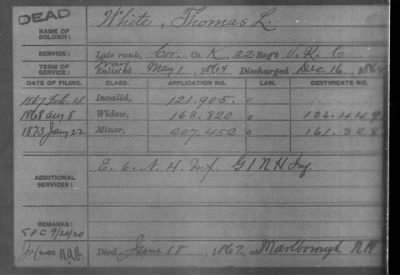 DEAD
NAME OF SOLDIER:
White, Thomas L.
SERVICE:
Late rank, Cor. Co. K, 22 Reg't V. R. C
TERM OF SERVICE:
Enlisted May 1, 1864 Discharged Dec 16, 186
DATE OF FILING. CLASS. APPLICATION NO. LAW. CERTIFICATE NO.
1867 Feb 4 Invalid, 121.905.
1868 Aug 8 Widow, 163.820
1873 Jany 22 Minor, 207.452 161.328
ADDITIONAL SERVICES:
E. 6 N. H. Inf. G 1 N H Inf.
REMARKS:
9/20/20
Died June 18, 1867, at Marlborough N H